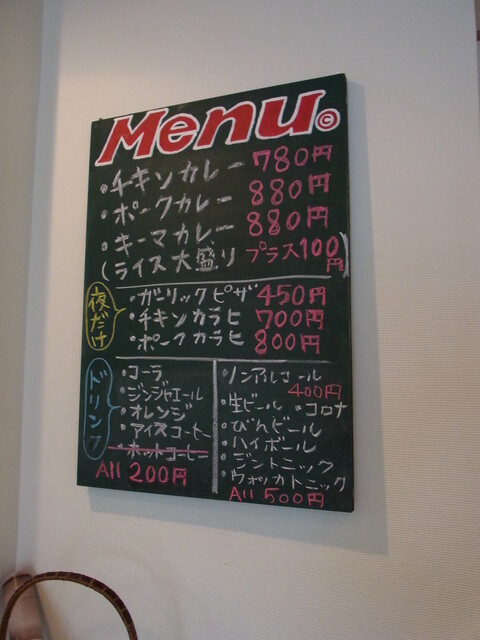 Menu ©
・チキンカレー 780円
・ポークカレー 880円
・キーマカレー 880円
(ライス大盛り プラス100円)
夜だけ
・ガーリックピザ 450円
・チキンカラヒ 700円
・ポークカラヒ 800円
ドリンク
・コーラ
・ジンジャエール
・オレンジ
・アイスコーヒー
・ホットコーヒー
All 200円
・ノンアルコール
400円
・生ビール ・コロナ
・びんビール
・ハイボール
・ジントニック
・ウォッカトニック
All 500円